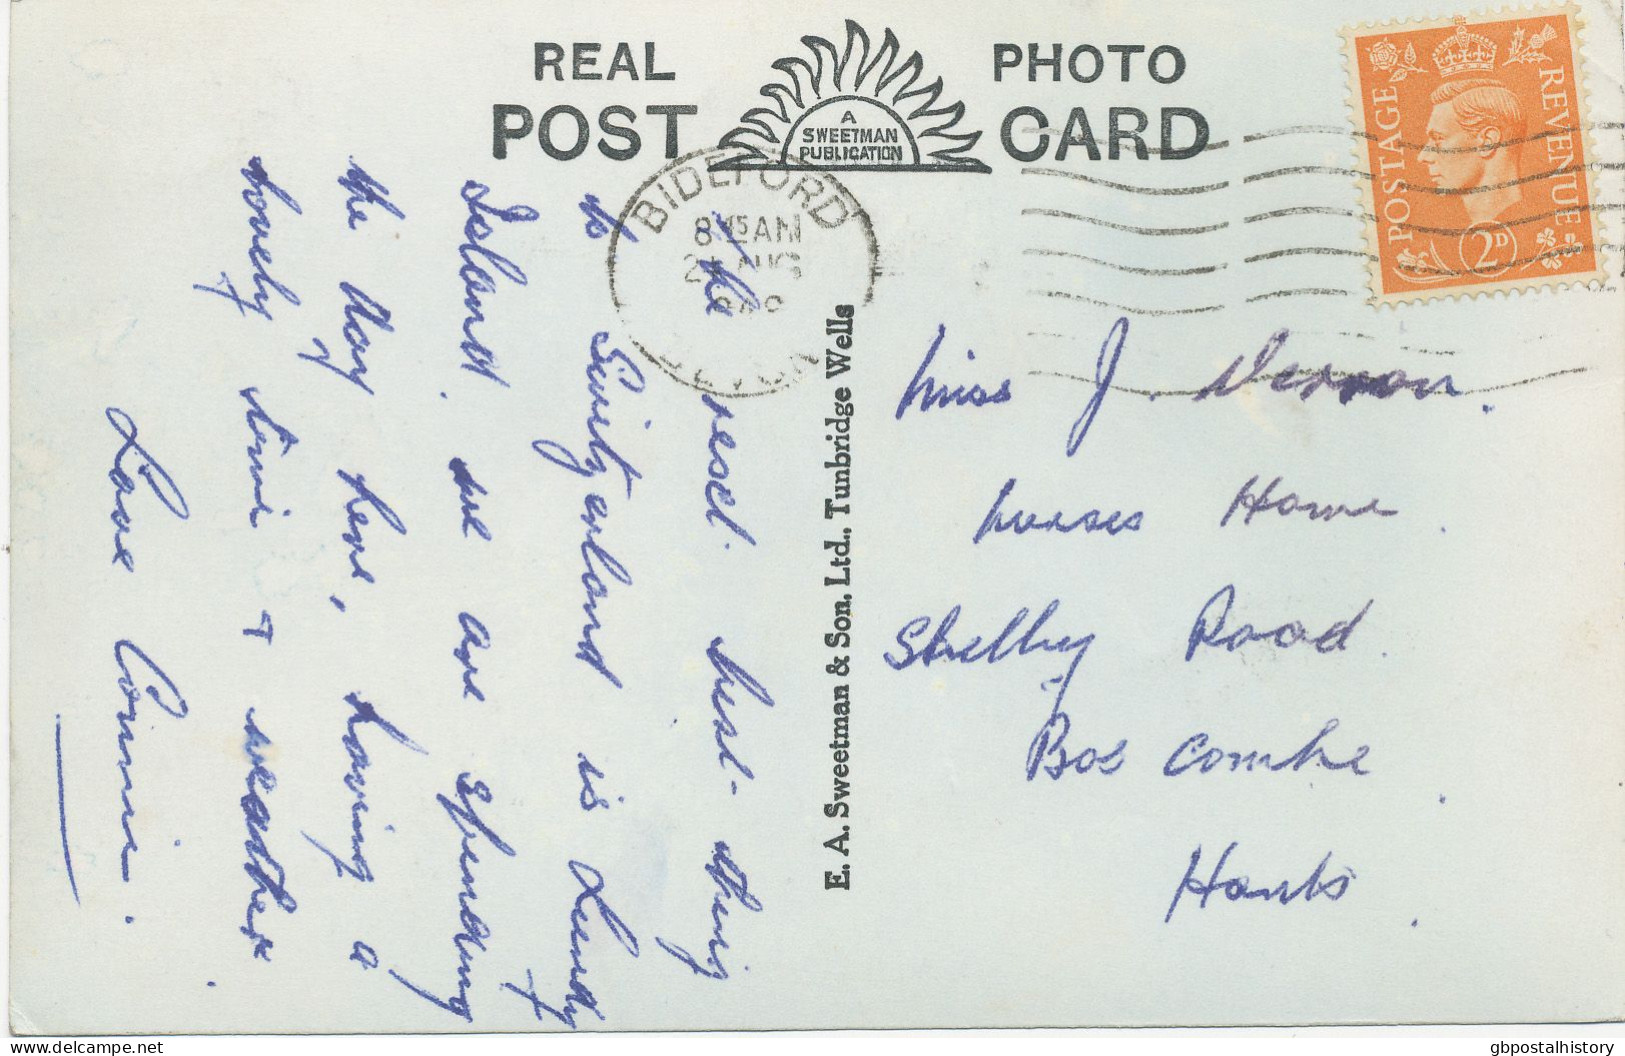 REAL PHOTO
POST CARD
A
SWEETMAN
PUBLICATION
BIDEFORD
8 15 AM
AUG
DEVON
POSTAGE REVENUE
2D
the next best thing
to Switzerland is Lundy
Island. we are spending
the day here, having a
lovely time & weather
Love Connie.
E. A. Sweetman & Son, Ltd., Tunbridge Wells
Miss J. Vernon.
Nurses Home.
Shelley Road.
Bos combe.
Hants.
delcampe.net
gbpostalhistory